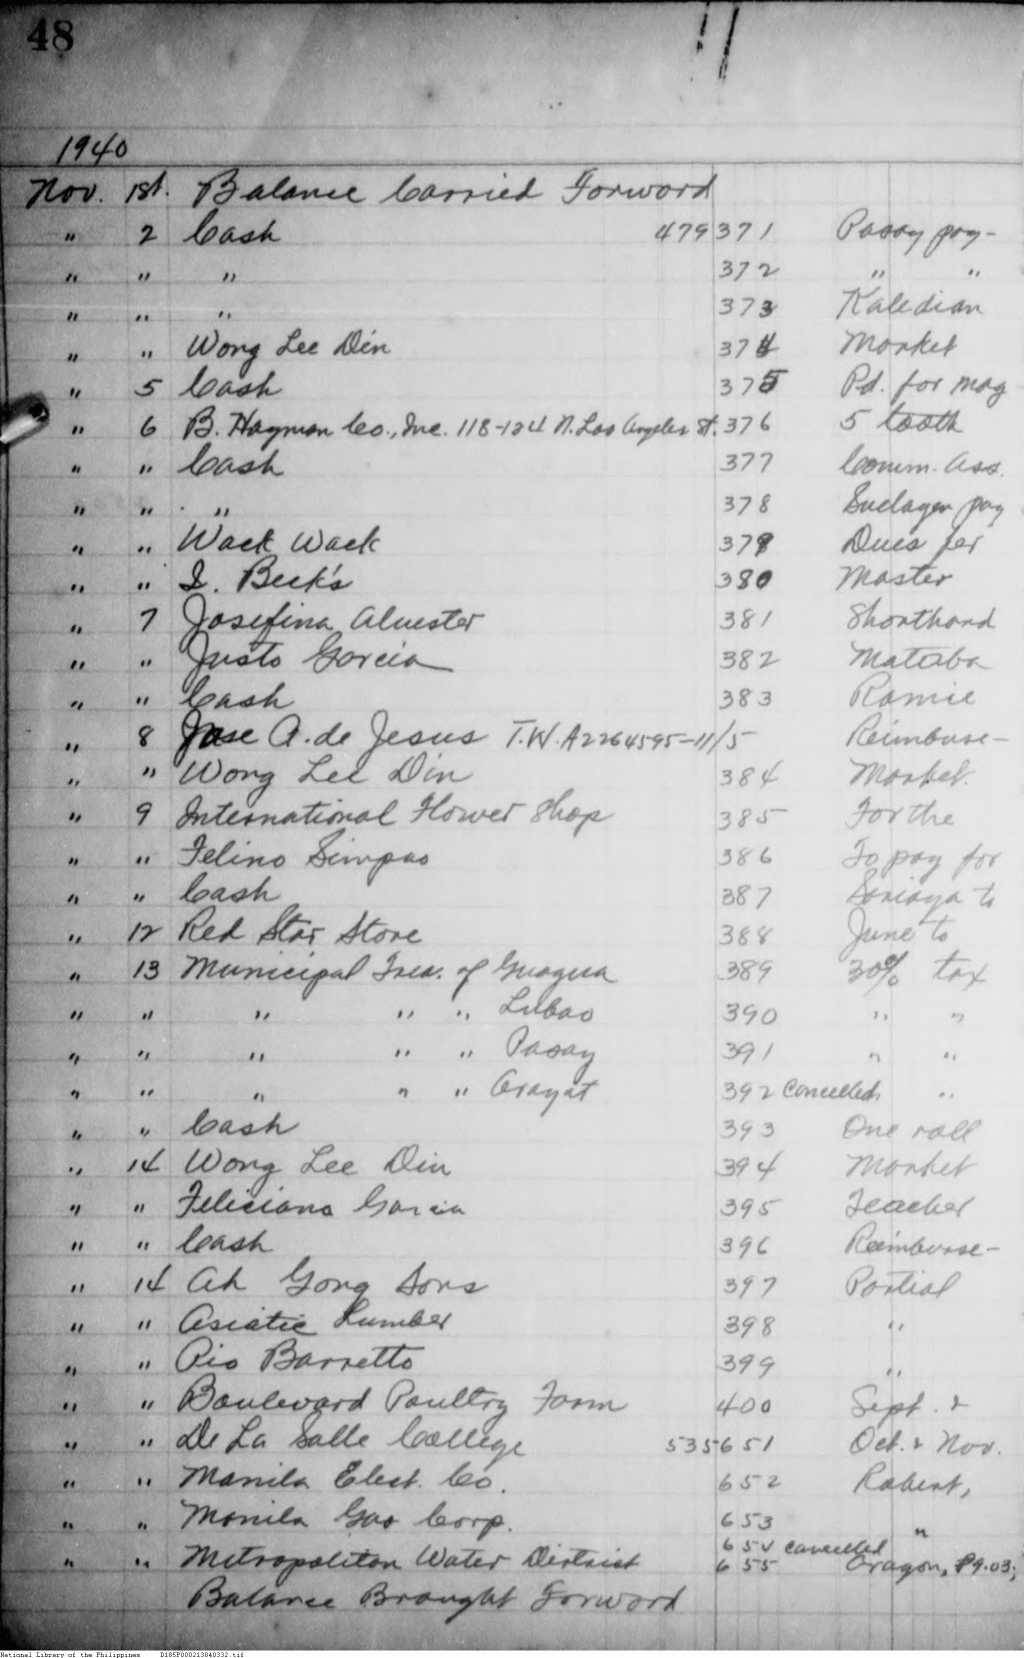 48
1940
Nov. 1st. Balance Carried Forward
" 2 Cash 479371 Pasay pay-
" " " 372 " "
" " " 373 Kaledian
" " Wong Lee Din 374 Market
" 5 Cash 375 Pd. for mag
" 6 B. Hayman Co., Inc. 118-124 N. Los Angeles St. 376 5 tooth
" " Cash 377 Comm. Ass.
" " " 378 Sudagen pay
" " Wack Wack 379 Dues for
" " I. Beck's 380 Master
" 7 Josefina Aluester 381 Shorthand
" " Justo Garcia 382 Matuba
" " Cash 383 Ramie
" 8 Jose A. de Jesus T.W. A2264595-11/5 Reimburse-
" " Wong Lee Din 384 Market.
" 9 International Flower Shop 385 For the
" " Felino Simpao 386 To pay for
" " Cash 387 Sariaya to
" 12 Red Star Store 388 June to
" 13 Municipal Trea. of Guagua 389 30% tax
" " " " " Lubao 390 " "
" " " " " Pasay 391 " "
" " " " " Arayat 392 Cancelled "
" " Cash 393 One roll
" 14 Wong Lee Din 394 Market
" " Feliciano Garcia 395 Teacher
" " Cash 396 Reimburse-
" 14 Ah Gong Sons 397 Partial
" " Asiatic Lumber 398 "
" " Pio Barretto 399 "
" " Boulevard Poultry Farm 400 Sept. &
" " De La Salle College 535651 Oct. & Nov.
" " Manila Elect. Co. 652 Robert,
" " Manila Gas Corp. 653 "
654 cancelled
" " Metropolitan Water District 655 Aragon, ₱9.03;
Balance Brought Forward
National Library of the Philippines D185P000213040332.tif